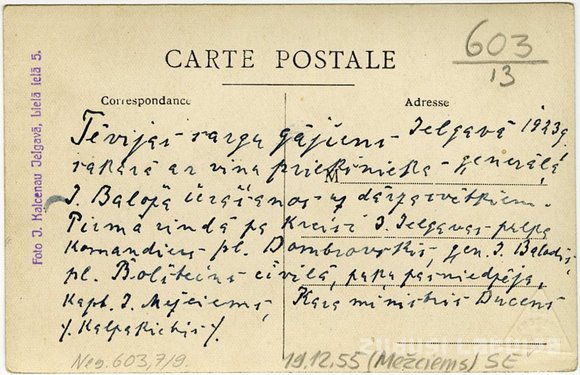 603
13
CARTE POSTALE
Correspondance
Adresse
Foto J. Kalcenau Jelgavā, Lielā ielā 5.
Tēvijas sargu gājiens Jelgavā 1923g
sakarā ar viņa priekšnieka - ģenerāļa
M
J. Baloža ierašanos uz dārza svētkiem.
Pirmā rindā pa kreisi J. Jelgavas pulka
Komandieris pl. Dombrovskis, ģen. J. Balodis,
pl. Bolšteins civilā, paka pasniedzēja,
Kapt. J. Mežciems, Kara ministris Ducens
/. Kalpakietis /.
Neg. 603,7/9.
19.12.55 (Mežciems) SE